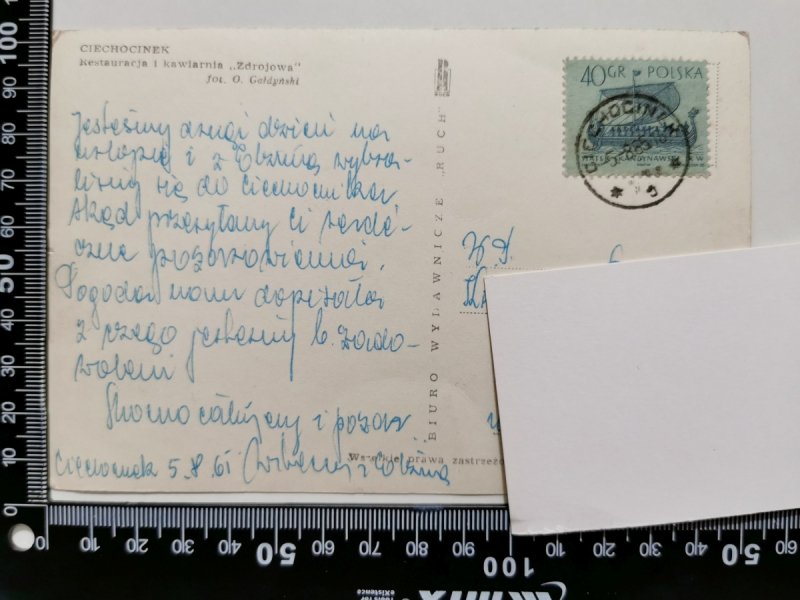 CIECHOCINEK
Restauracja i kawiarnia „Zdrojowa"
fot. O. Gałdyński
Jesteśmy drugi dzień na
urlopie i z Elżunią wybra-
liśmy się do Ciechocinka
skąd przesyłamy Ci serde-
czne pozdrowienia.
Pogoda nam dopisała
z czego jesteśmy b. zado-
woleni
Mocno całujemy i pozdr
Ciechocinek 5.8.61 i Elżunia
BIURO WYDAWNICZE „RUCH"
Wszelkie prawa zastrzeżo
40 GR POLSKA
CIECHOCINEK
W.P.
100
90
80
70
60
50
40
30
20
10
0
0
10
20
30
40
50
60
70
80
90
100
10
20
30
40
50